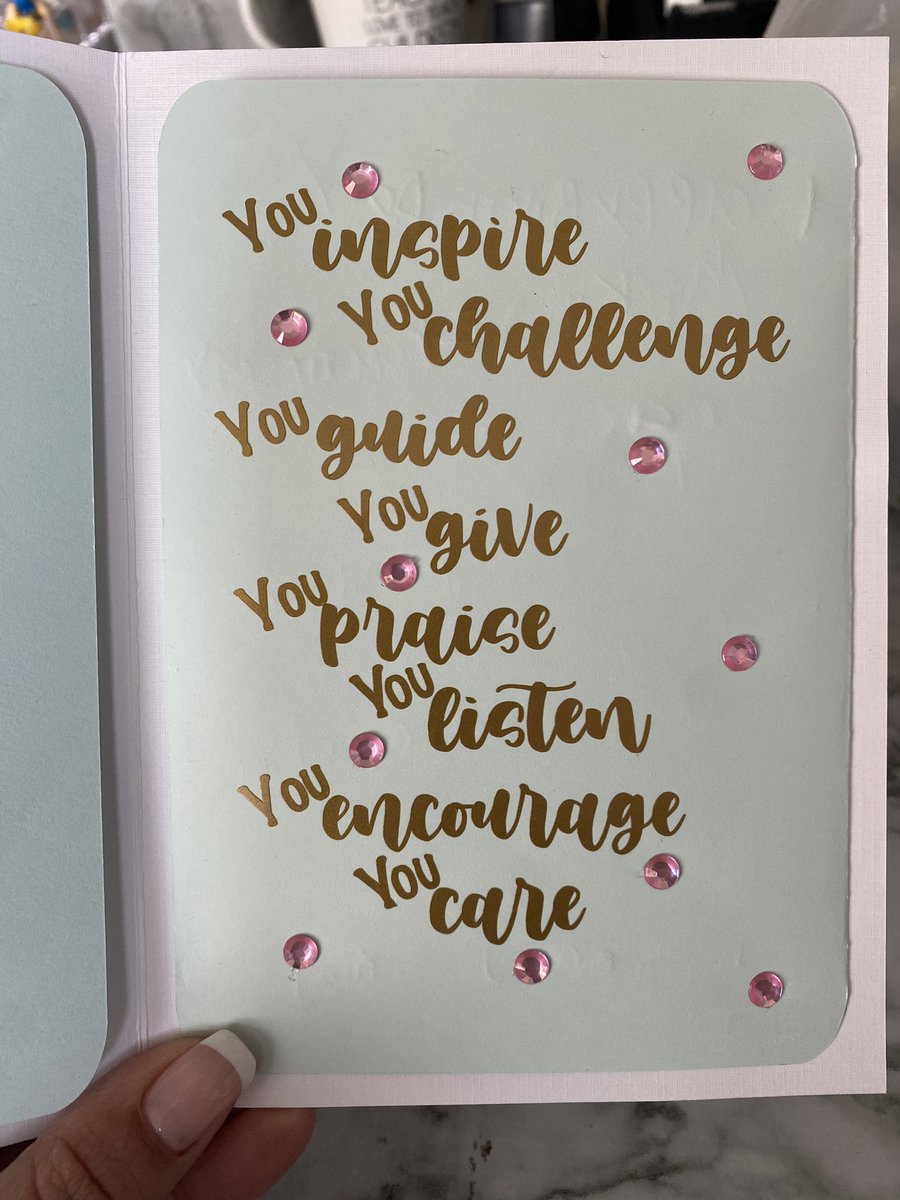 You inspire
You challenge
You guide
You give
You praise
You listen
You encourage
You care